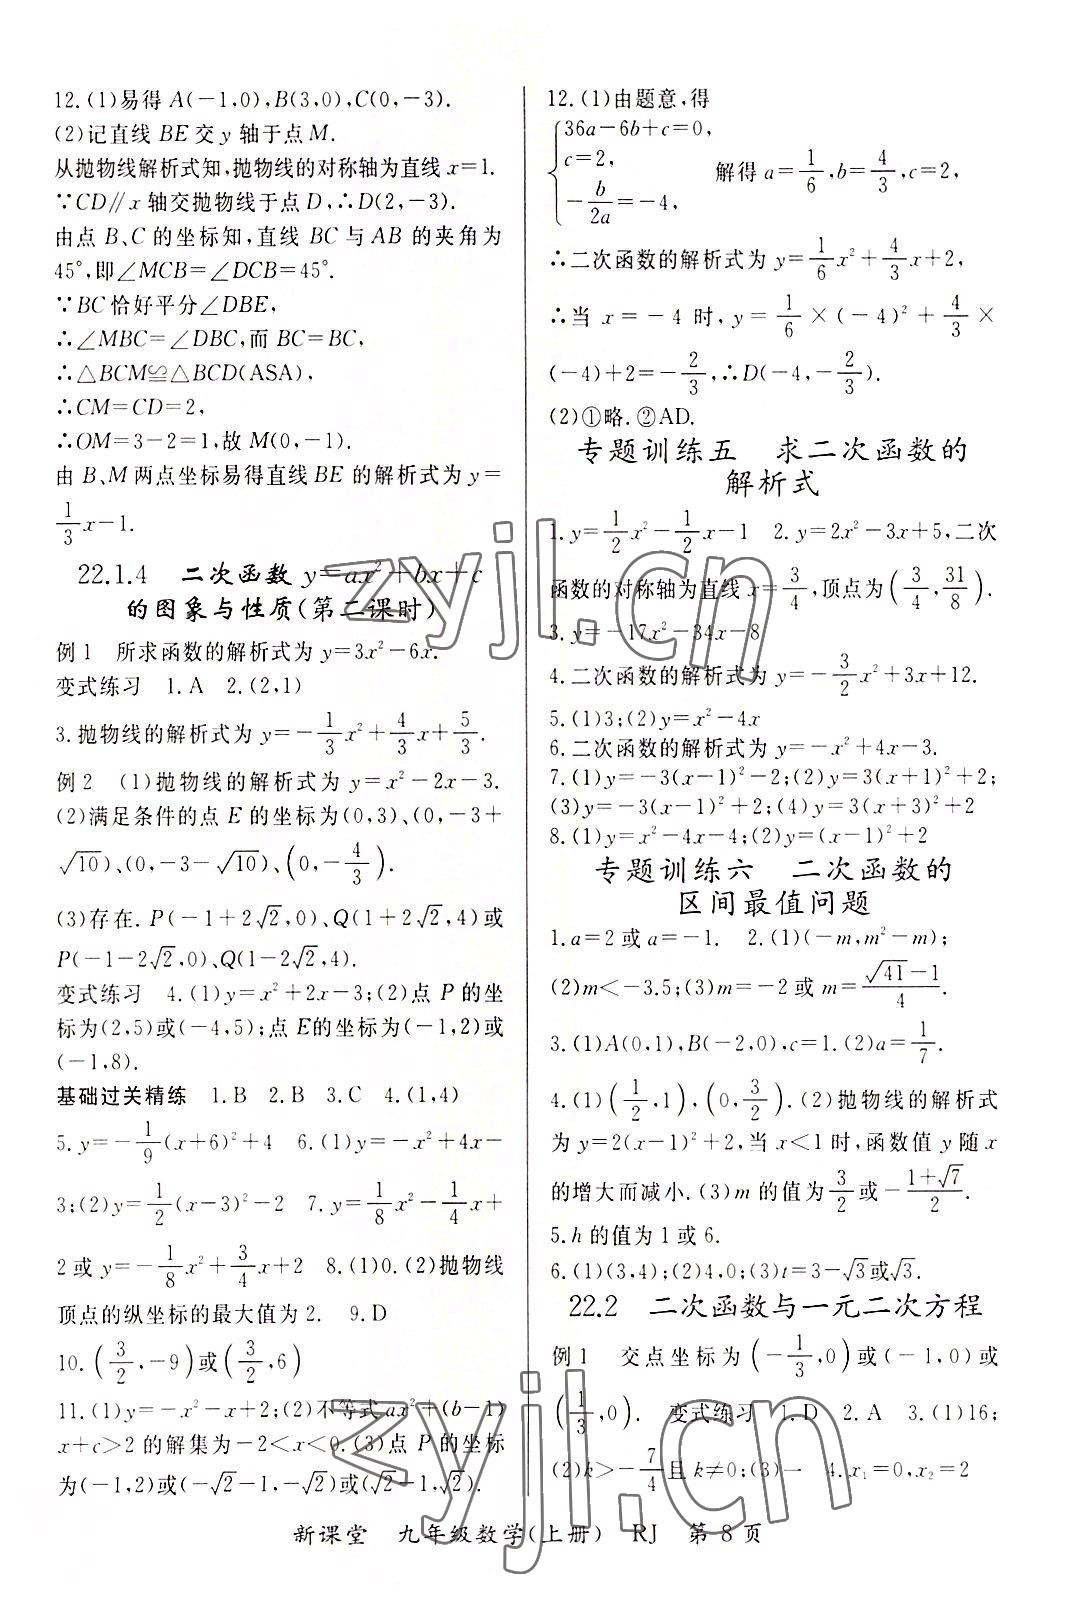 12.(1)易得 A(-1,0),B(3,0),C(0,-3).
(2)记直线 BE 交 y 轴于点 M.
从抛物线解析式知,抛物线的对称轴为直线 x=1.
∵CD∥x 轴交抛物线于点 D,∴D(2,-3).
由点 B、C 的坐标知,直线 BC 与 AB 的夹角为
45°,即∠MCB=∠DCB=45°.
∵BC 恰好平分∠DBE,
∴∠MBC=∠DBC,而 BC=BC,
∴△BCM≌△BCD(ASA),
∴CM=CD=2,
∴OM=3-2=1,故 M(0,-1).
由 B、M 两点坐标易得直线 BE 的解析式为 y=
1/3x-1.
22.1.4 二次函数 y=ax²+bx+c
的图象与性质(第二课时)
例1 所求函数的解析式为 y=3x²-6x.
变式练习 1.A 2.(2,1)
3.抛物线的解析式为 y=-1/3x²+4/3x+5/3.
例2 (1)抛物线的解析式为 y=x²-2x-3.
(2)满足条件的点 E 的坐标为(0,3)、(0,-3+
√10)、(0,-3-√10)、(0,-4/3).
(3)存在. P(-1+2√2,0)、Q(1+2√2,4)或
P(-1-2√2,0)、Q(1-2√2,4).
变式练习 4.(1)y=x²+2x-3;(2)点 P 的坐
标为(2,5)或(-4,5);点E的坐标为(-1,2)或
(-1,8).
基础过关精练 1.B 2.B 3.C 4.(1,4)
5.y=-1/9(x+6)²+4 6.(1)y=-x²+4x-
3;(2)y=1/2(x-3)²-2 7.y=1/8x²-1/4x+
2或 y=-1/8x²+3/4x+2 8.(1)0.(2)抛物线
顶点的纵坐标的最大值为 2. 9.D
10.(3/2,-9)或(3/2,6)
11.(1)y=-x²-x+2;(2)不等式 ax²+(b-1)
x+c>2 的解集为-2<x<0.(3)点 P 的坐标
为(-1,2)或(-√2-1,-√2)或(√2-1,√2).
12.(1)由题意,得
{36a-6b+c=0,
c=2,
-b/2a=-4, 解得 a=1/6,b=4/3,c=2,
∴二次函数的解析式为 y=1/6x²+4/3x+2,
∴当 x=-4 时,y=1/6×(-4)²+4/3×
(-4)+2=-2/3,∴D(-4,-2/3).
(2)①略.②AD.
专题训练五 求二次函数的
解析式
1.y=1/2x²-1/2x-1 2.y=2x²-3x+5,二次
函数的对称轴为直线 x=3/4,顶点为(3/4,31/8).
3.y=-17x²-34x-8
4.二次函数的解析式为 y=-3/2x²+3x+12.
5.(1)3;(2)y=x²-4x
6.二次函数的解析式为 y=-x²+4x-3.
7.(1)y=-3(x-1)²-2;(2)y=3(x+1)²+2;
(3)y=-3(x-1)²+2;(4)y=3(x+3)²+2
8.(1)y=x²-4x-4;(2)y=(x-1)²+2
专题训练六 二次函数的
区间最值问题
1.a=2 或 a=-1. 2.(1)(-m,m²-m);
(2)m<-3.5;(3)m=-2 或 m=(√41-1)/4.
3.(1)A(0,1),B(-2,0),c=1.(2)a=1/7.
4.(1)(1/2,1),(0,3/2).(2)抛物线的解析式
为 y=2(x-1)²+2,当 x<1 时,函数值 y 随 x
的增大而减小.(3)m 的值为 3/2 或-(1+√7)/2.
5.h 的值为 1 或 6.
6.(1)(3,4);(2)4,0;(3)t=3-√3或√3.
22.2 二次函数与一元二次方程
例1 交点坐标为(-1/3,0)或(-1,0)或
(1/3,0). 变式练习 1.D 2.A 3.(1)16;
(2)k>-7/4且 k≠0;(3)一 4.x₁=0,x₂=2
新课堂 九年级数学(上册) RJ 第 8 页
zyjl.cn
zyjl.cn